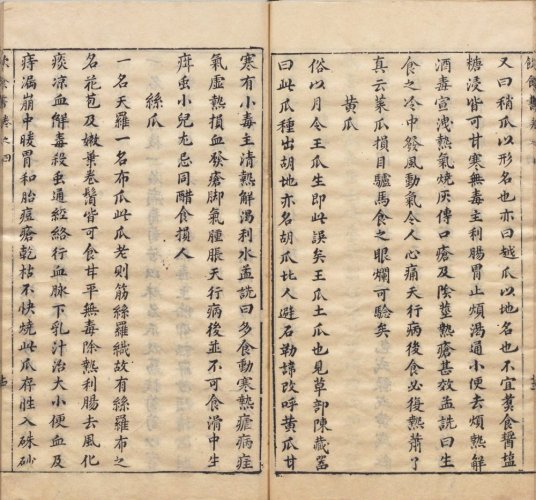 又曰稍瓜以形名也亦曰越瓜以地名也不宜煑食醬塩
糖浸皆可甘寒無毒主利腸胃止煩渴通小便去煩熱解
酒毒宣洩熱氣燒灰傅口瘡及陰莖熱瘡甚效孟詵曰生
食之冷中發風動氣令人心痛天行病後食必復熱蕭了
真云菜瓜損目驢馬食之眼爛可驗矣
黄瓜
俗以月令王瓜生即此誤矣王瓜土瓜也見草部陳藏器
曰此瓜種出胡地亦名胡瓜北人避石勒諱改呼黄瓜甘
寒有小毒主清熱解渴利水孟詵曰多食動寒熱瘧病疰
氣虛熱損血發瘡脚氣腫脹天行病後並不可食滑中生
疳虫小兒尤忌同醋食損人
絲瓜
一名天羅一名布瓜此瓜老則筋絲羅織故有絲羅布之
名花苞及嫩葉卷鬚皆可食甘平無毒除熱利腸去風化
痰凉血解毒殺虫通經絡行血脉下乳汁治大小便血及
痔漏崩中暖胃和胎痘瘡乾枯不快燒此瓜存性入硃砂